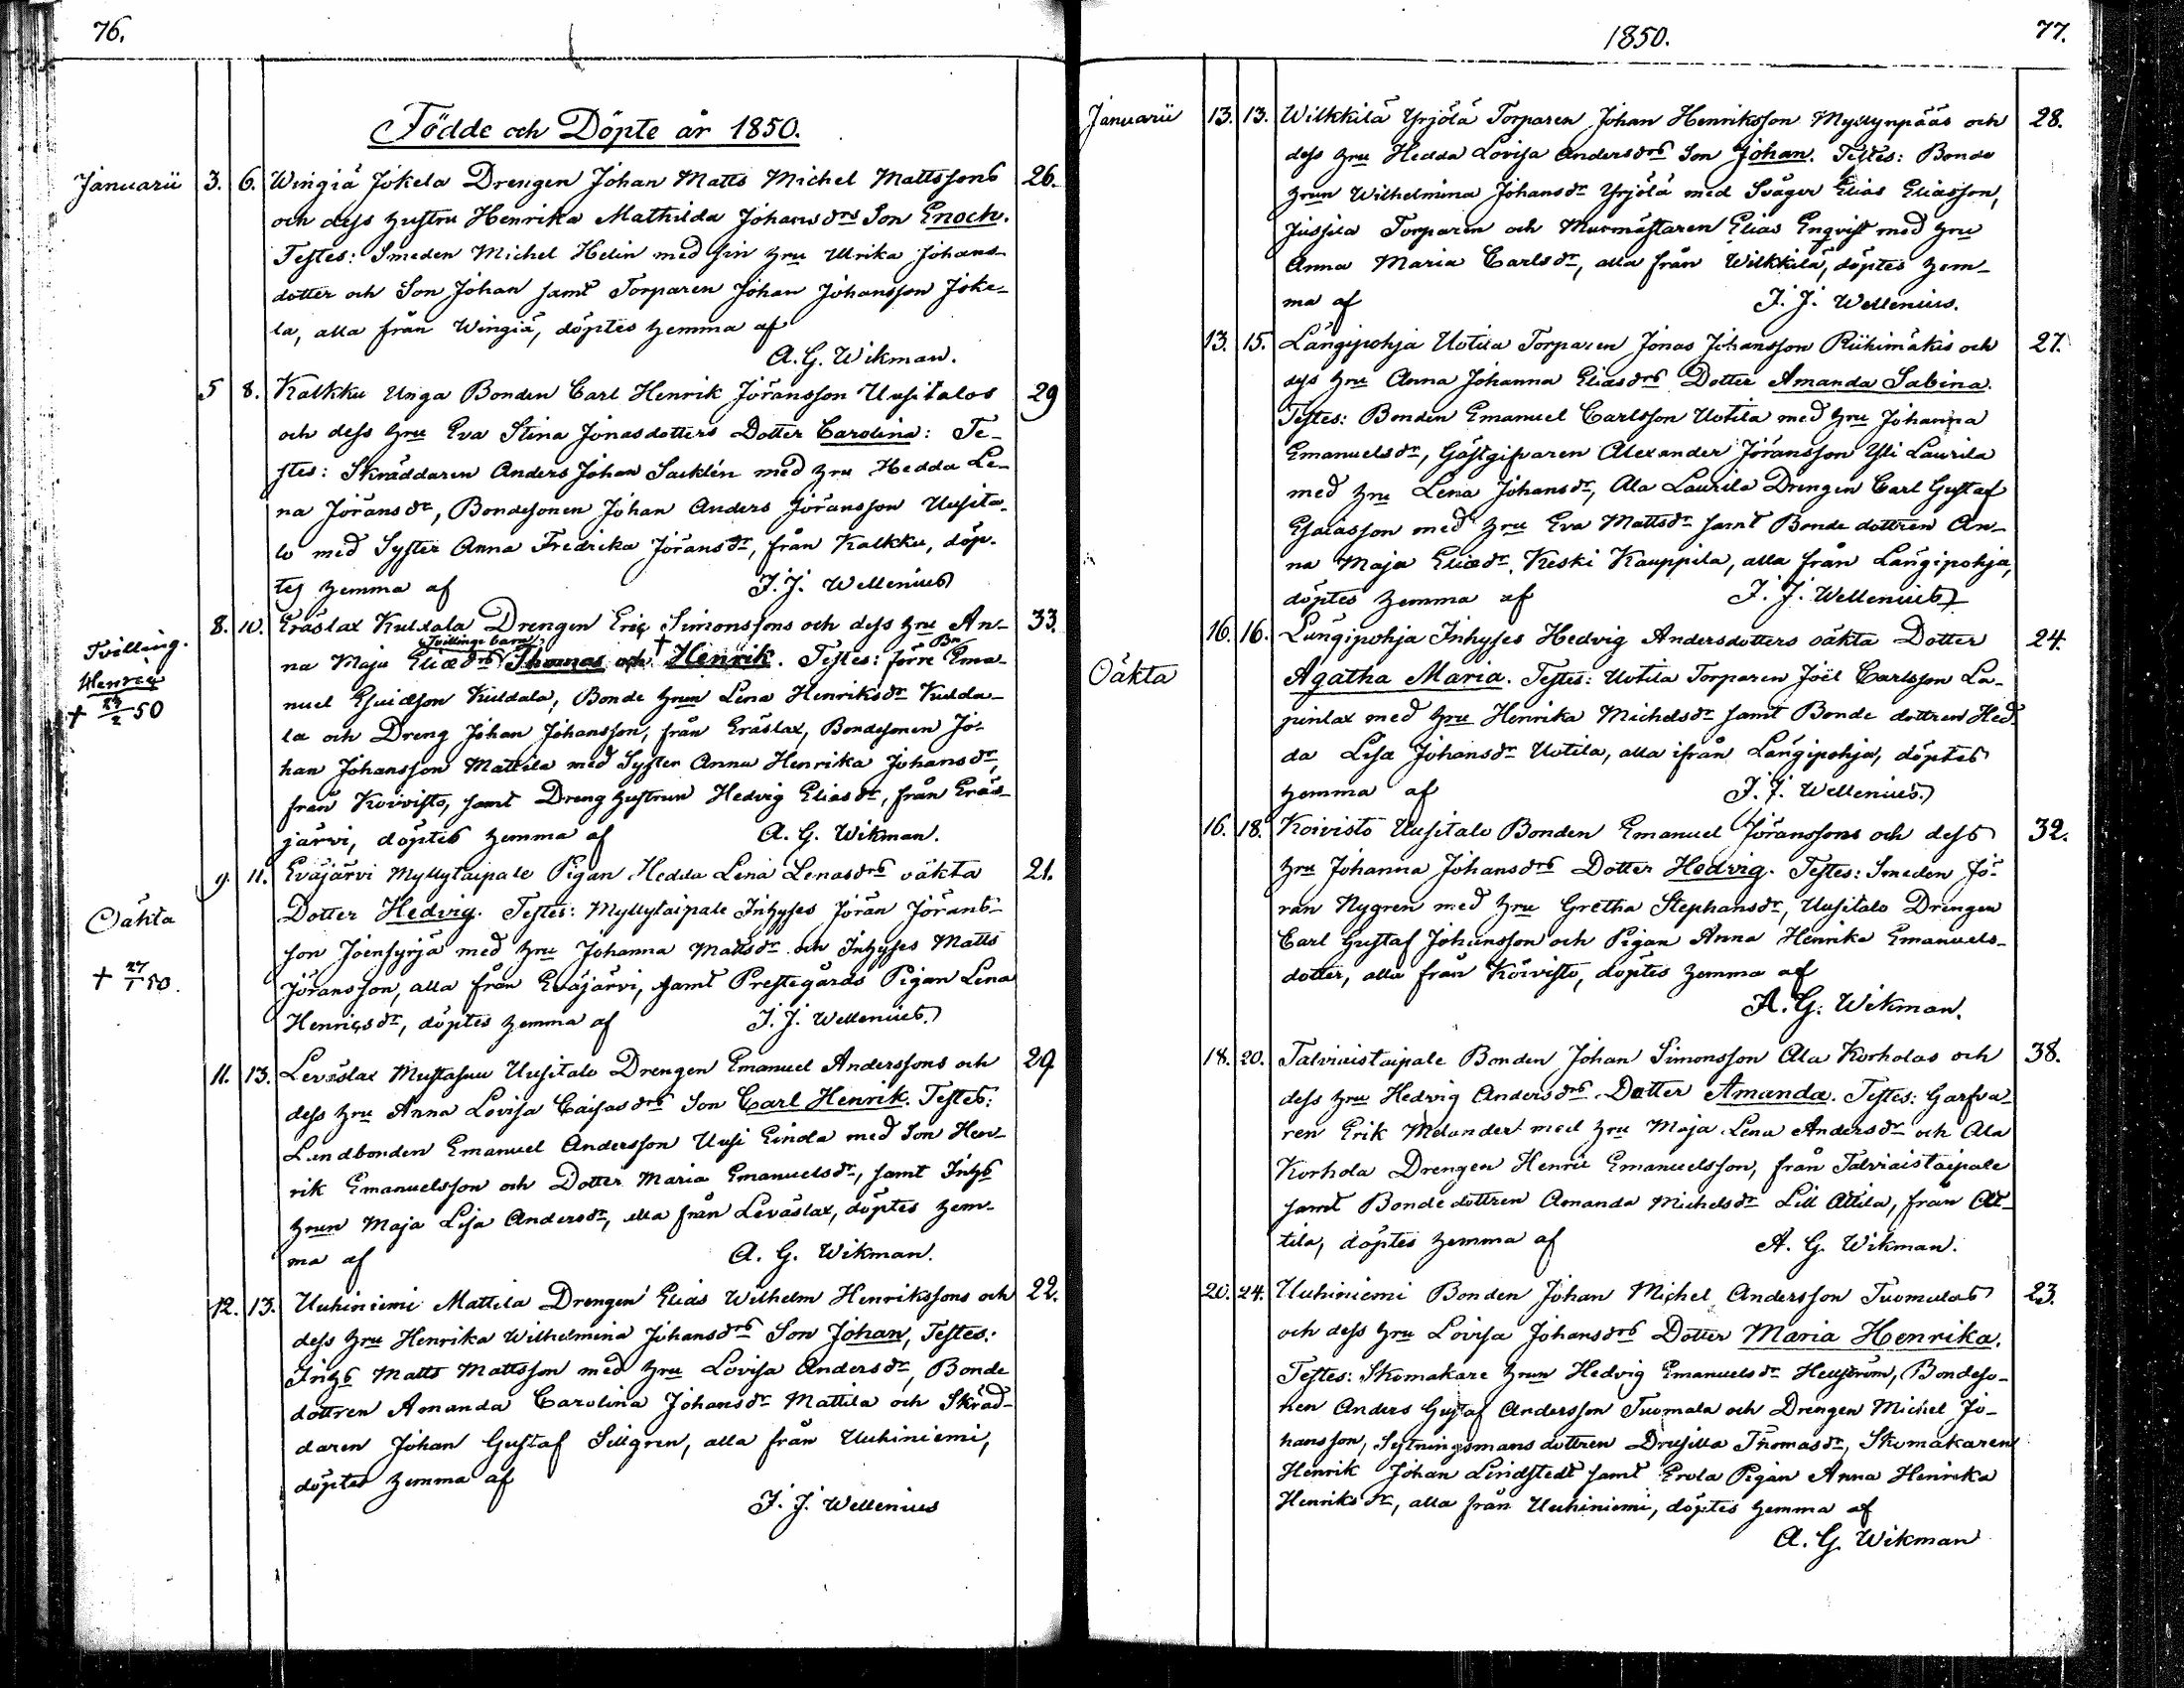 76.
Födde och Döpte år 1850.
Januarii 3. 6. Wingiä Jokela Drengen Johan Matts Michel Mattssons 26.
och dess hustru Henrika Mathilda Johansdrs Son Enoch.
Testes: Smeden Michel Helin med sin hru Ulrika Johans-
dotter och Son Johan samt Torparen Johan Johansson Joke-
la, alla från Wingiä, döptes hemma af
A. G. Wikman.
5 8. Kalkku Unga Bonden Carl Henrik Jöransson Uusitalos 29
och dess hru Eva Stina Jonasdotters Dotter Carolina: Te-
stes: Skräddaren Anders Johan Sacklén med hru Hedda Le-
na Jöransdr, Bondesonen Johan Anders Jöransson Uusita-
lo med Syster Anna Fredrika Jöransdr, från Kalkku, döp-
tes hemma af J. J. Wellenius
8. 10. Eräslax Kuldala Drengen Eric Simonssons och dess hru An- 33.
Tvilling.
Tvillinge barn † Bn
na Maja Eliædrs Thomas och Henrik. Testes: förre Ema-
Henric
† 23/2 50
nuel Esaidson Kuldala, Bonde hrun Lena Henriksdr Kulda-
la och Dreng Johan Johansson, från Eräslax, Bondesonen Jo-
han Johansson Mattila med Syster Anna Henrika Johansdr,
från Koivisto, samt Dreng hustrun Hedvig Eliasdr, från Eräs-
järvi, döptes hemma af A. G. Wikman.
9. 11. Eväjärvi Myllytaipale Pigan Hedda Lena Lenasdrs oäkta 21.
Oäkta
Dotter Hedvig. Testes: Myllytaipale Inhyses Jöran Jörans-
son Joensyrjä med hru Johanna Mattsdr och Inhyses Matts
† 27/1 50.
Jöransson, alla från Eväjärvi, samt Prestegårds Pigan Lena
Henricsdr, döptes hemma af J. J. Wellenius.
11. 13. Leväslax Mustasuu Uusitalo Drengen Emanuel Anderssons och 29
dess hru Anna Lovisa Caisasdrs Son Carl Henrik. Testes:
Landbonden Emanuel Andersson Uusi Einola med Son Hen-
rik Emanuelsson och Dotter Maria Emanuelsdr, samt Inhs
hrun Maja Lisa Andersdr, alla från Leväslax, döptes hem-
ma af A. G. Wikman.
12. 13. Uuhiniemi Mattila Drengen Elias Wilhelm Henrikssons och 22.
dess hru Henrika Wilhelmina Johansdrs Son Johan, Testes:
Inhs Matts Mattsson med hru Lovisa Andersdr, Bonde
dottren Amanda Carolina Johansdr Mattila och Skräd-
daren Johan Gustaf Sillgren, alla från Uuhiniemi,
döptes hemma af
J. J. Wellenius
1850. 77.
Januarii 13. 13. Wilkkilä Yrjölä Torparen Johan Henriksson Myllynpääs och 28.
dess hru Hedda Lovisa Andersdrs Son Johan. Testes: Bonde
hrun Wilhelmina Johansdr Yrjölä med Svåger Elias Eliasson,
Jussila Torparen och Murmästaren Elias Enqvist med hru
Anna Maria Carlsdr, alla från Wilkkilä, döptes hem-
ma af J. J. Wellenius.
13. 15. Längipohja Uotila Torparen Jonas Johansson Riihimäkis och 27.
dess hru Anna Johanna Eliasdrs Dotter Amanda Sabina.
Testes: Bonden Emanuel Carlsson Uotila med hru Johanna
Emanuelsdr, Gästgifvaren Alexander Jöransson Yli Laurila
med hru Lena Johansdr, Ala Laurila Drengen Carl Gustaf
Esaiasson med hru Eva Mattsdr samt Bonde dottren An-
na Maja Eliædr. Keski Kauppila, alla från Längipohja,
döptes hemma af J. J. Wellenius
16. 16. Längipohja Inhyses Hedvig Andersdotters oäkta Dotter 24.
Oäkta
Agatha Maria. Testes: Uotila Torparen Joël Carlsson La-
pinlax med hru Henrika Michelsdr samt Bonde dottren Hed-
da Lisa Johansdr Uotila, alla ifrån Längipohja, döptes
hemma af J. J. Wellenius.
16. 18. Koivisto Uusitalo Bonden Emanuel Jöranssons och dess 32.
hru Johanna Johansdrs Dotter Hedvig. Testes: Smeden Jö-
ran Nygren med hru Gretha Stephansdr, Uusitalo Drengen
Carl Gustaf Johansson och Pigan Anna Henrika Emanuels-
dotter, alla från Koivisto, döptes hemma af
A. G. Wikman.
18. 20. Talviaistaipale Bonden Johan Simonsson Ala Korholas och 38.
dess hru Hedvig Andersdrs Dotter Amanda. Testes: Garfva-
ren Erik Melander med hru Maja Lena Andersdr och Ala
Korhola Drengen Henric Emanuelsson, från Talviaistaipale
samt Bonde dottren Amanda Michelsdr Lill Attila, från At-
tila, döptes hemma af A. G. Wikman.
20. 24. Uuhiniemi Bonden Johan Michel Andersson Tuomulas 23.
och dess hru Lovisa Johansdrs Dotter Maria Henrika.
Testes: Skomakare hrun Hedvig Emanuelsdr Hellström, Bondeso-
nen Anders Gustaf Andersson Tuomala och Drengen Michel Jo-
hansson, Sytningsmans dottren Drusilla Thomasdr, Skomakaren
Henrik Johan Lindstedt samt Erola Pigan Anna Henrika
Henriksdr, alla från Uuhiniemi, döptes hemma af
A. G. Wikman